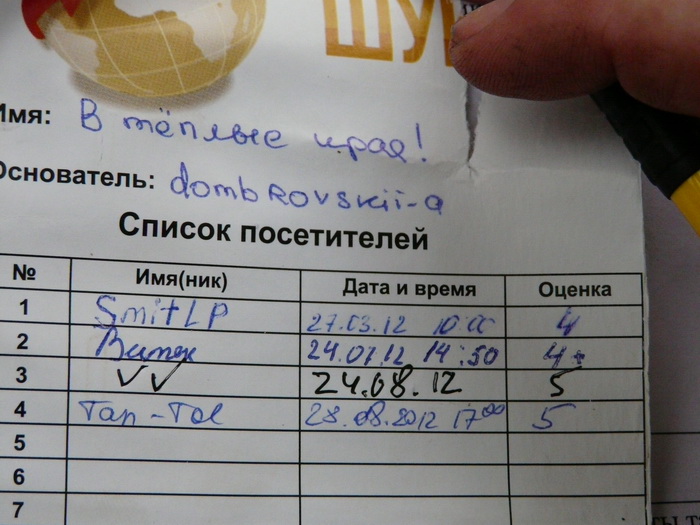 ШУ
Имя: В тёплые края!
Основатель: dombrovskii-a
Список посетителей
№ Имя(ник) Дата и время Оценка
1 SmitLP 27.03.12 10:00 4
2 Витек 24.07.12 14:50 4+
3 24.08.12 5
4 Tan-Tol 28.08.2012 17 00 5
5
6
7